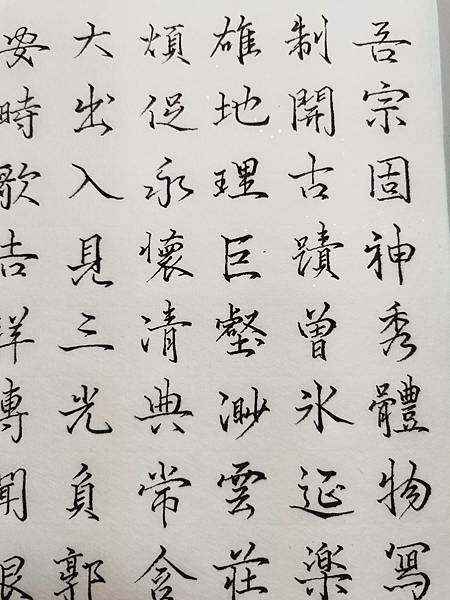 吾宗固神秀體物寫
制開古蹟曾氷延楽
雄地理巨壑渺雲莊
煩促永懷清典常含
大出入見三光負郭
安時歌吉祥